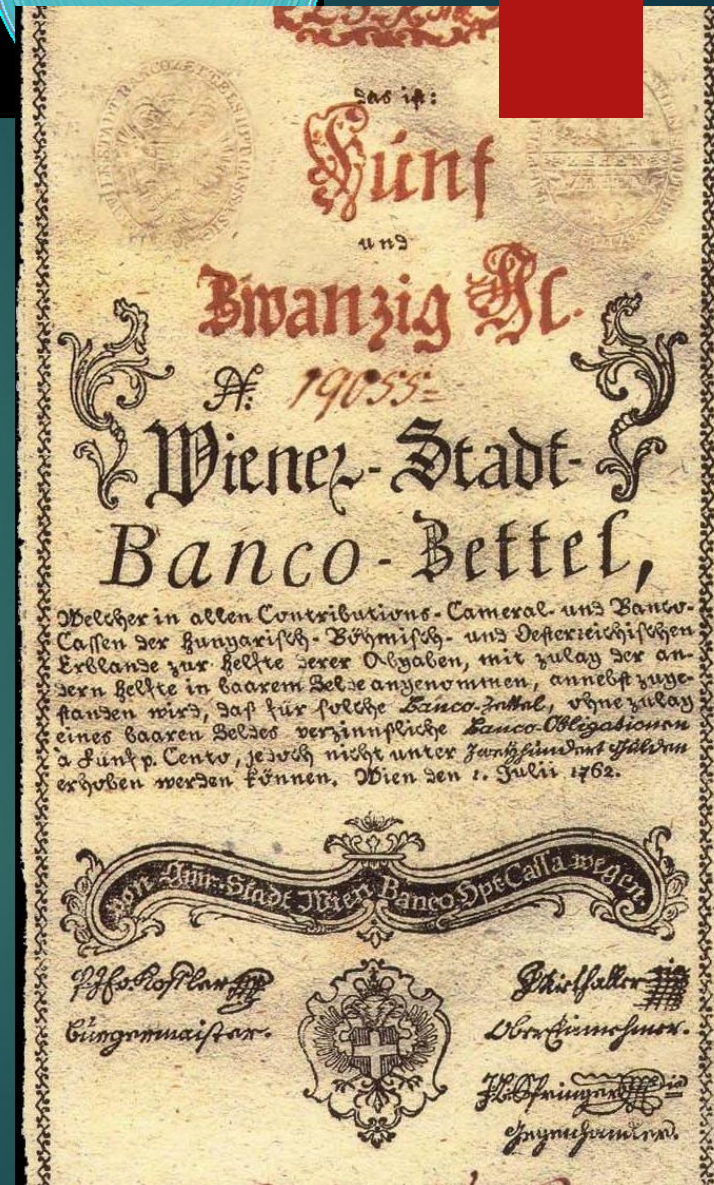 das ist:
Fünf
und
Zwanzig Fl.
N: 19055=
Wiener-Stadt-
Banco-Zettel,
Welcher in allen Contributions-Cameral- und Banco-
Cassen der Hungarisch-Böhmisch- und Oesterreichischen
Erblande zur Helfte derer Abgaben, mit zulag der an-
dern Helfte in baarem Gelde angenommen, annebst zuge-
standen wird, daß für solche Banco-Zettel, ohne zulag
eines baaren Geldes verzinnsliche Banco-Obligationen
à Fünf p. Cento, jedoch nicht unter Zweyhundert Gulden
erhoben werden können. Wien den 1. Julii 1762.
von Stadt Wien Banco Hpt Cassa wegen
Burgermaister.
Ober Einnehmer.
Gegenhandler.